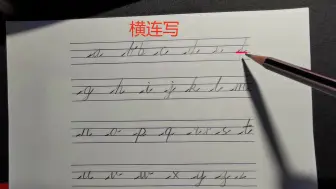 横连写
a b c d e f
g h i j k l m
n o p q r s t
u v w x y z